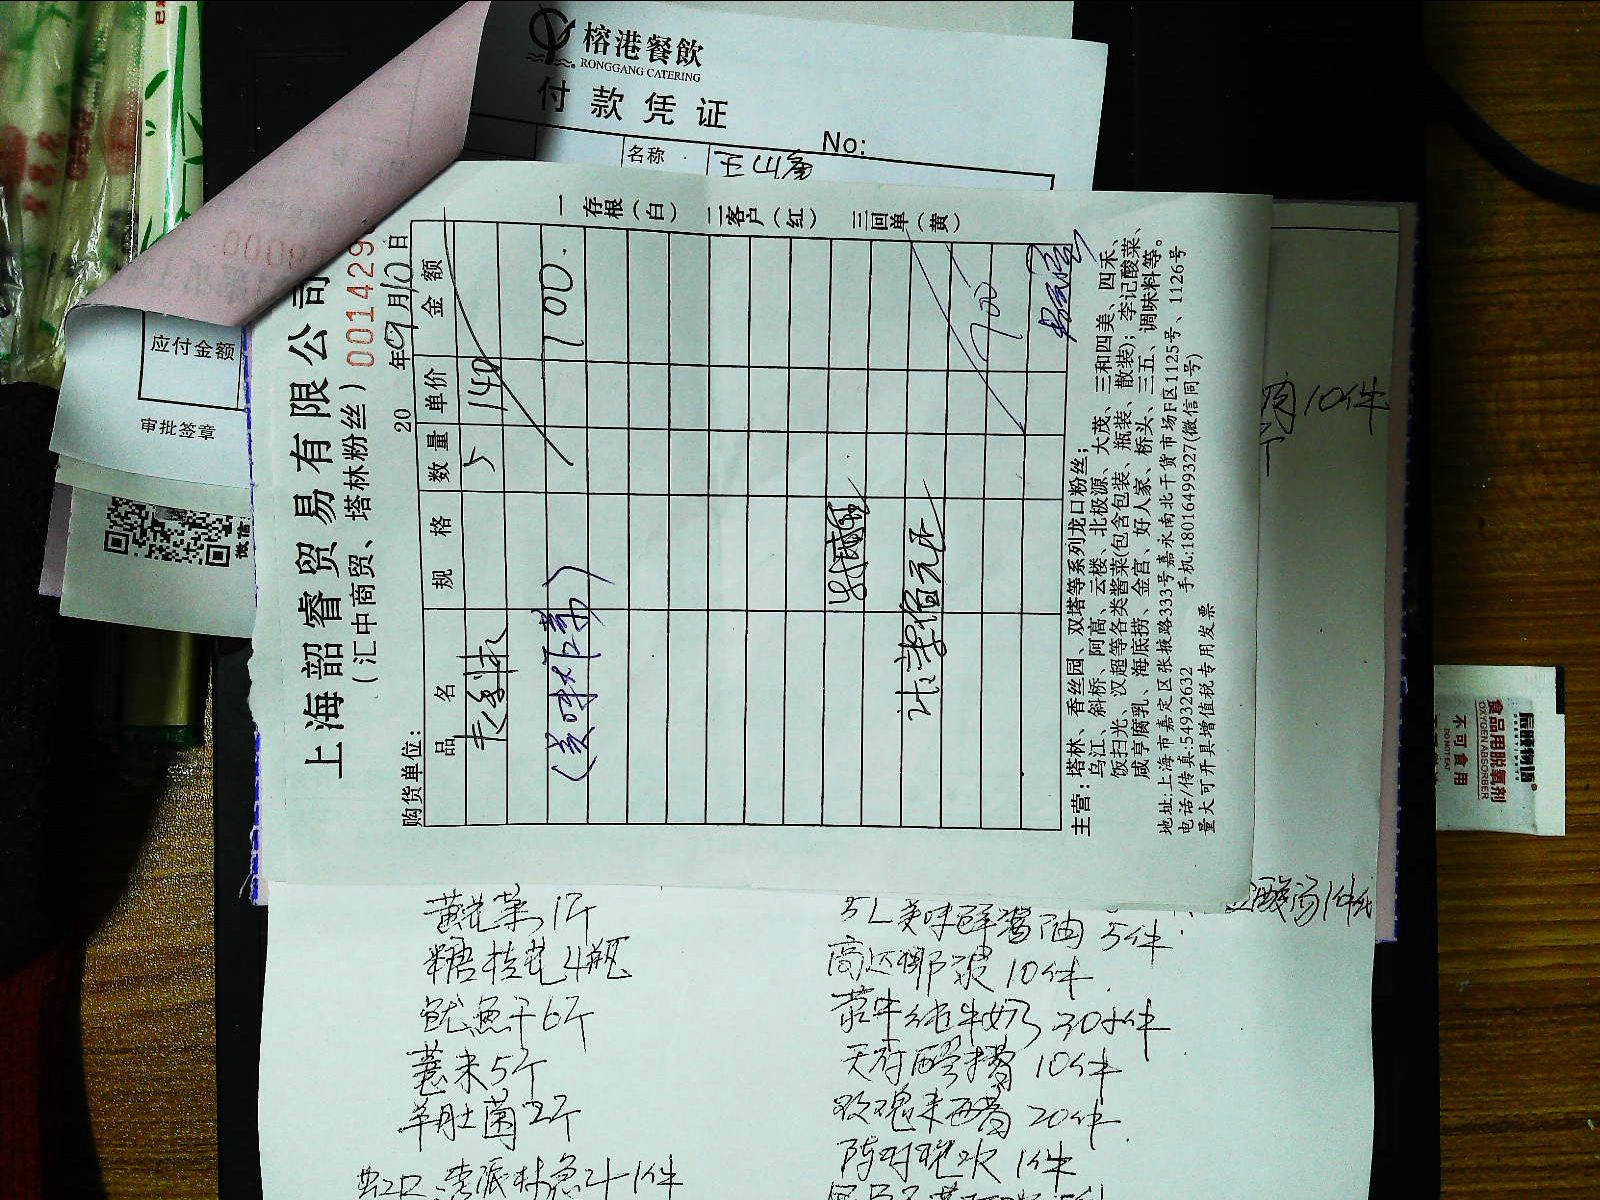 榕港餐飲
RONGGANG CATERING
付款凭证
No:
名称
应付金额
审批签章
微信
上海韶睿贸易有限公司
(汇中商贸、塔林粉丝) 001429
购货单位: 20 年09月10日
品 名 规 格 数量 单价 金 额
5 140
700.
700
一存根(白) 二客户(红) 三回单(黄)
主营:塔林、香丝园、双塔等系列龙口粉丝;
乌江、斜桥、阿高、云楼、北极源、大茂、三和四美、四禾、
饭扫光、汉超等各类酱菜(包含包装、瓶装、散装);李记酸菜、
咸亨腐乳、海底捞、金宫、好人家、桥头、三五、调味料等。
地址:上海市嘉定区张掖路333号嘉永南北干货市场F区1125号、1126号
电话/传真:54932632 手机:18016499327(微信同号)
量大可开具增值税专用发票
10件
酸汤1件
黄花菜1斤
糖桂花4瓶
鱿鱼干6斤
薏米5斤
羊肚菌2斤
5L美味鲜酱油 5件
高达椰浆 10件
蒙牛纯牛奶 30件
天府醪糟 10件
玫瑰米西醋 20件
1件
食品用脱氧剂
OXYGEN ABSORBER
不可食用
DO NOT EAT